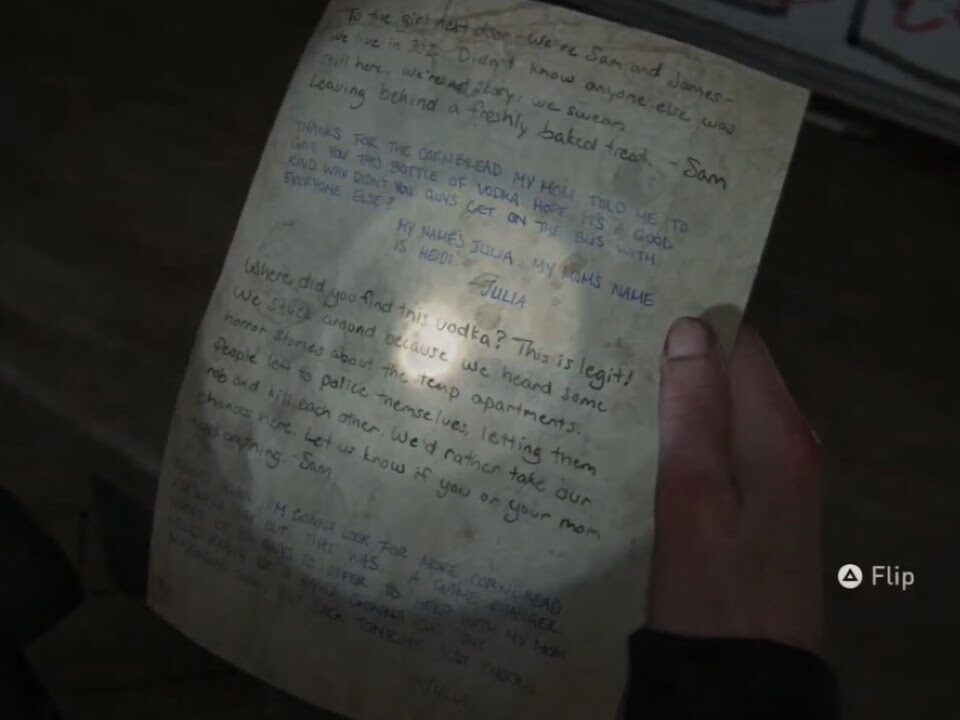 To the girl next door - We're Sam and James -
We live in 302. Didn't know anyone else was
still here. We're not scary, we swear.
Leaving behind a freshly baked treat. - Sam
THANKS FOR THE CORNBREAD MY MOM TOLD ME TO
GIVE YOU THIS BOTTLE OF VODKA HOPE IT'S A GOOD
KIND WHY DIDN'T YOU GUYS GET ON THE BUS WITH
EVERYONE ELSE?
MY NAME'S JULIA. MY MOM'S NAME
IS HEIDI.
JULIA
Where did you find this vodka? This is legit!
We stuck around because we heard some
horror stories about the temp apartments.
People left to police themselves, letting them
rob and kill each other. We'd rather take our
chances here. Let us know if you or your mom
need anything. - Sam
I'M GONNA LOOK FOR MORE CORNBREAD
BUT THAT WAS A GAME CHANGER
GUYS TO OFFER TO HELP WITH MY MOM
GONNA
BACK TONIGHT JUST
JULIA
Flip